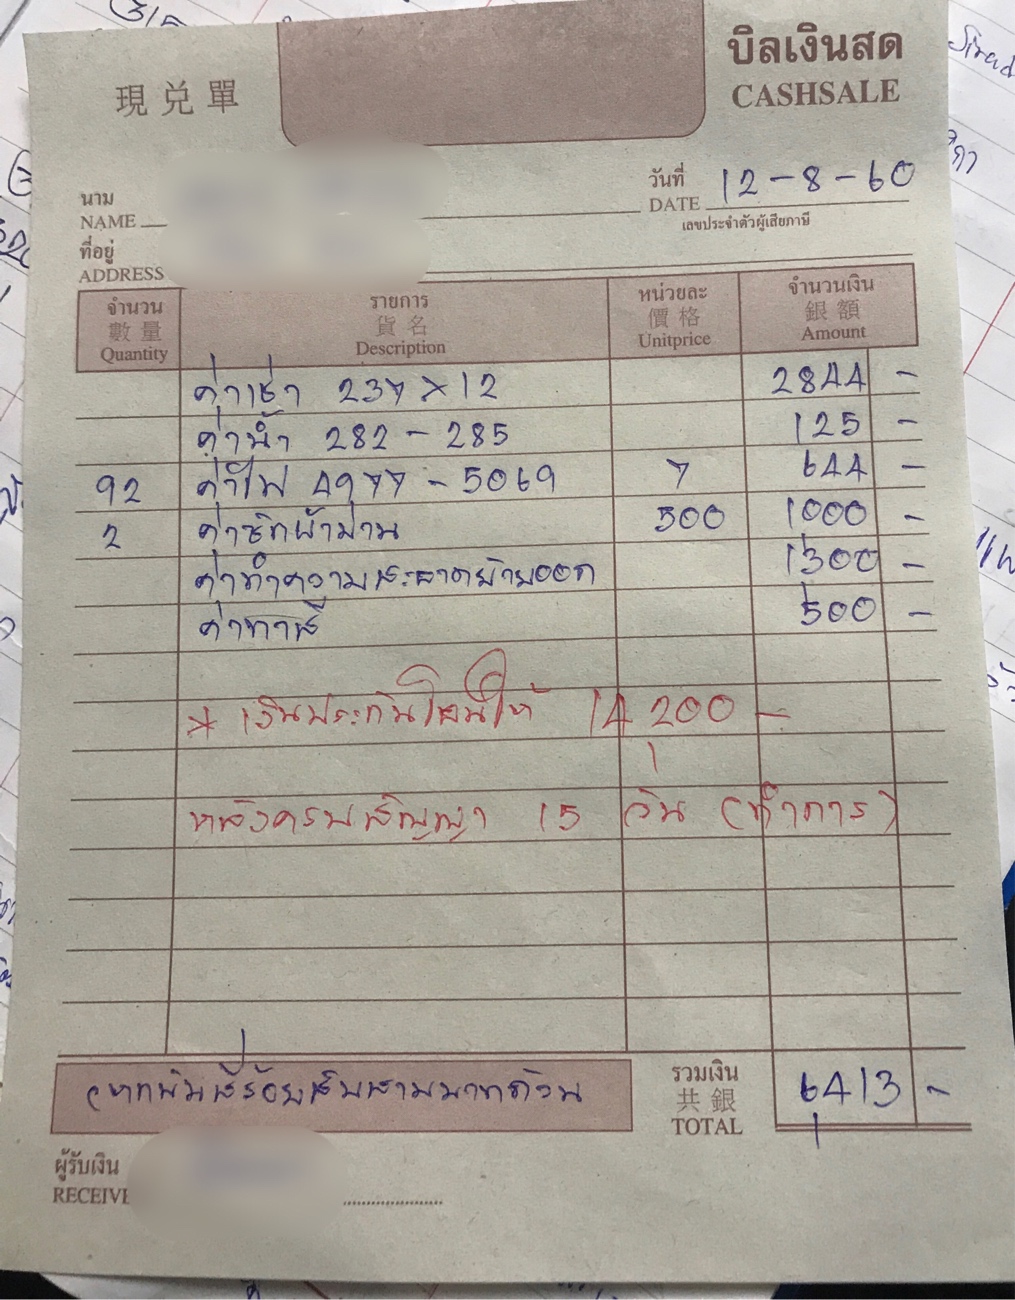 บิลเงินสด
現兑單 CASHSALE
นาม
NAME
วันที่
DATE 12-8-60
เลขประจำตัวผู้เสียภาษี
ที่อยู่
ADDRESS
จำนวน รายการ หน่วยละ จำนวนเงิน
數量 貨名 價格 銀額
Quantity Description Unitprice Amount
ค่าเช่า 237 x 12 2844 -
ค่าน้ำ 282 - 285 125 -
92 ค่าไฟ 4977 - 5069 7 644 -
2 ค่าซักผ้าม่าน 500 1000 -
ค่าทำความสะอาดย้ายออก 1300 -
ค่าทาสี 500 -
* เงินประกันโอนให้ 14,200 -
หลังครบสัญญา 15 วัน (ทำการ)
หกพันสี่ร้อยสิบสามบาทถ้วน
รวมเงิน
共銀
TOTAL
6,413 -
ผู้รับเงิน
RECEIVE